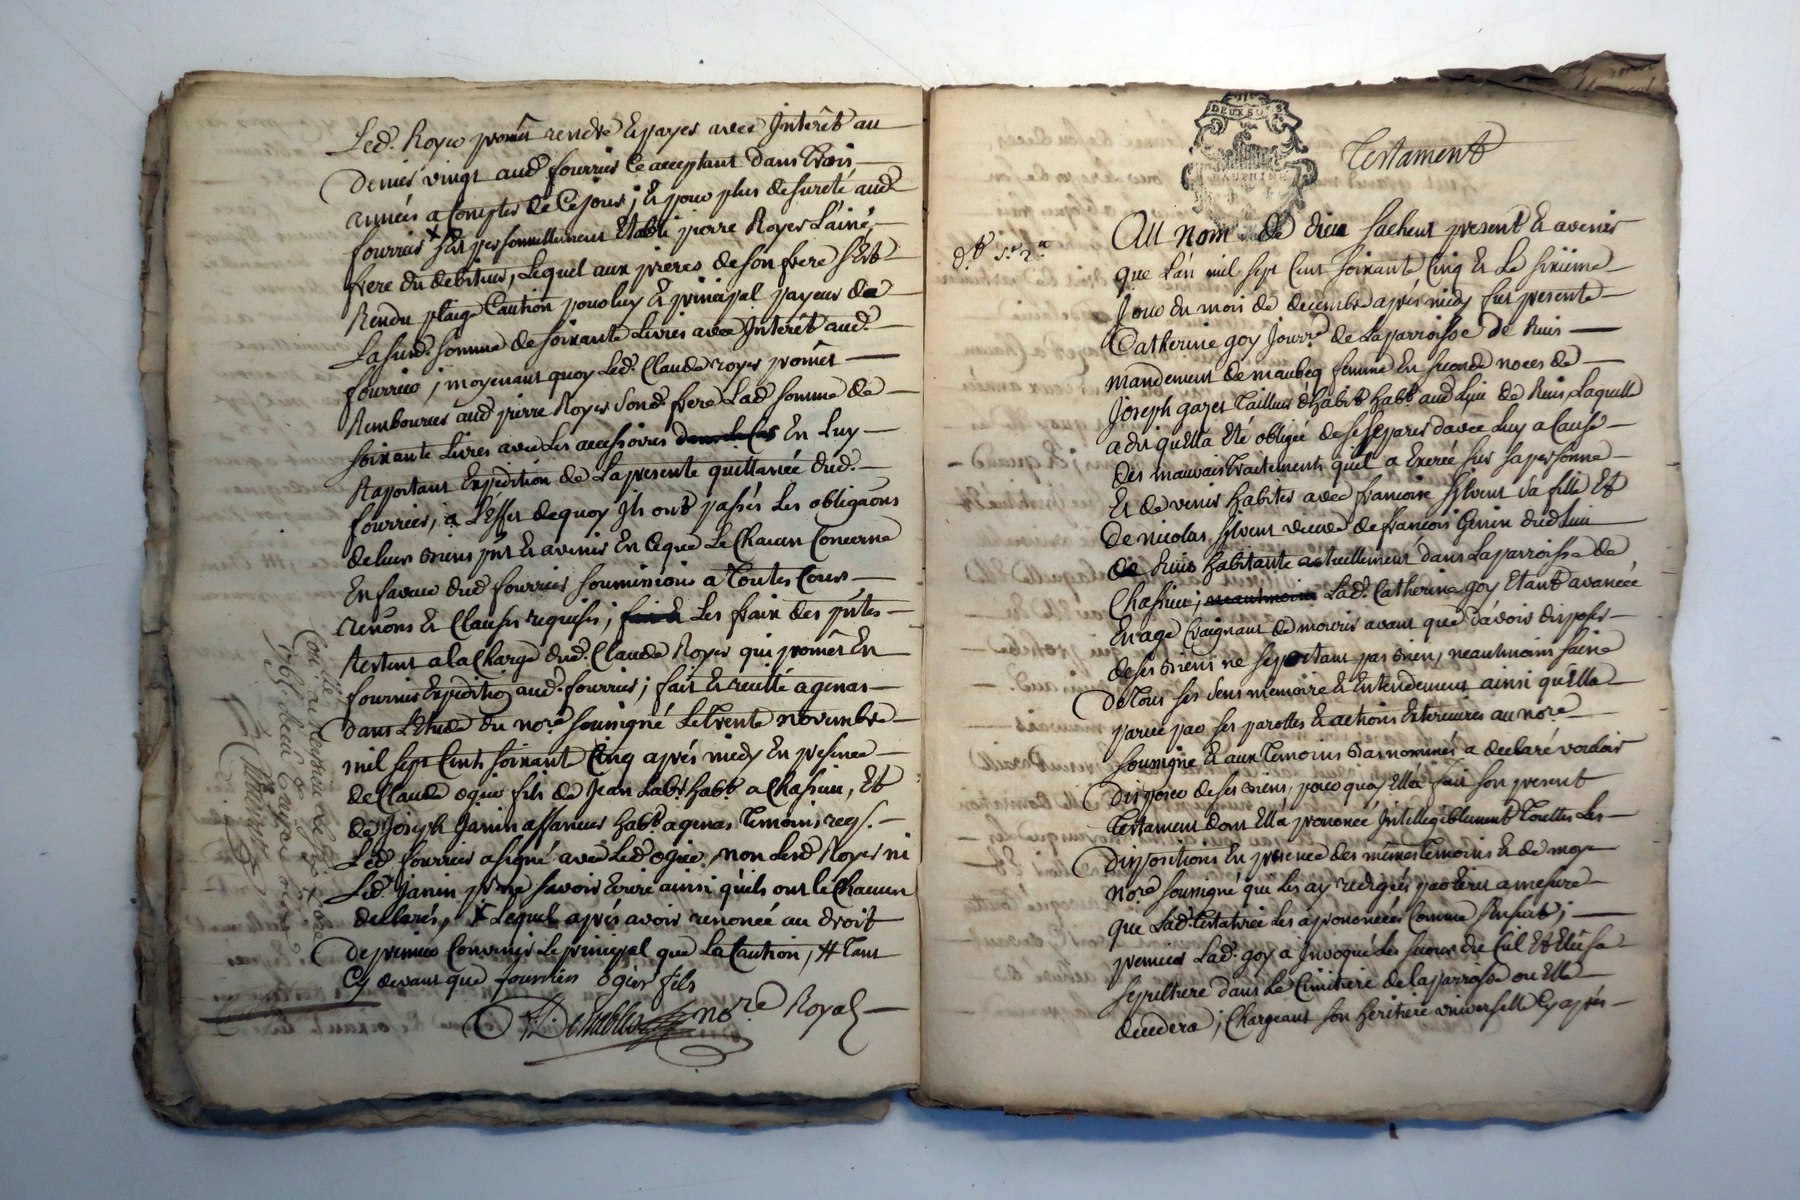 Led. Royer promet rendre & payer avec Interêt au
denier vingt aud. fourrier ce acceptant dans trois
années a Compter de Ce jour; & pour plus de sureté aud.
fourrier s'est personnellement Etabli pierre Royer L'ainé,
frere du debiteur, Lequel aux prieres de son frere s'Est
Rendu plaige Caution pour luy & principal payeur de
La susd. somme de soixante Livres avec Interêt aud.
fourrier; moyenant quoy Led. Claude royer promet
Rembourcer aud. pierre Royer sond. frere Lad. somme de
soixante Livres avec Les accessoires En Luy
Raportant Expedition de La presente quittancée dud.
fourrier, a L'Effet de quoy Ils ont passés Les obligaons
de leurs Biens pnt & avenir En Ce que Le Chacun Concerne
En faveur dud. fourrier soumissions a Toutes Cours
renons & Clauses requises; Les fraix des pntes
Restent a la Charge dud. Claude Royer qui promet En
fournir Expeditio aud. fourrier; fait & recitté a genas
dans L'Etude du nore. soussigné Le trente novembre
mil sept Cents soixant Cinq aprés midy En presence
de Claude ogier fils de Jean Labr. habt. a Chassieu, Et
de Joseph Janin affaneur habt. a genas temoins reqs.
Led. fourrier a signé avec Led. ogier, non Lesd. Royer ni
Led. Janin pr. ne savoir Ecrire ainsi qu'ils ont le Chacun
declarés, X Lequel aprés avoir renoncé au droit
de premier Convenir Le principal que La Caution, # Tant
Cy devant que fourrier ogier fils
nore Royal
Testament
DEUX SOLS
DAUPHINÉ
Au nom de dieu sachent present & avenir
que L'an mil sept Cent soixante Cinq & Le sixieme
Jour du mois de decembre aprés midy fut presente
Catherine goy Jourre. de La parroisse de Ruis
mandement de maubeq femme En seconde noces de
Joseph gazet tailleur d'habits habt. aud. Lieu de Ruis, Laquelle
a dit qu'Ella Eté obligée de se separer d'avec Luy a Cause
des mauvais traitements qu'il a Exercé sur sa personne
Et de venir habiter avec francoise silvent sa fille Et
de nicolas silvent veuve de francois Genin dud. Lieu
de Ruis habitante actuellement dans La parroisse de
Chassieu; Lad. Catherine goy Etant avancée
En age Craignant de mourir avant que d'avoir disposer
de ses Biens ne se portant pas Bien, neantmoins saine
de tous ses sens memoire & Entendement ainsi qu'Ella
parue par ses parolles & actions Exterieures au nore.
soussigné & aux Temoins Bas nommés a declaré vouloir
disposer de ses Biens, pour quoy Ella fait son present
Testament dont Ella prononcé Intellegiblement Touttes Les
dispositions En presence des mêmes temoins & de moy
nore. soussigné qui Les ay redigées par Ecrit a mesure
que Lad. testatrice Les a prononcées Comme s'Ensuit;
premier Lad. goy a Invoqué Les secours du Ciel Et Elû sa
sepulture dans Le Cimitiere de La parroisse ou Elle
decedera; Chargeant son heritiere universelle Cy aprés